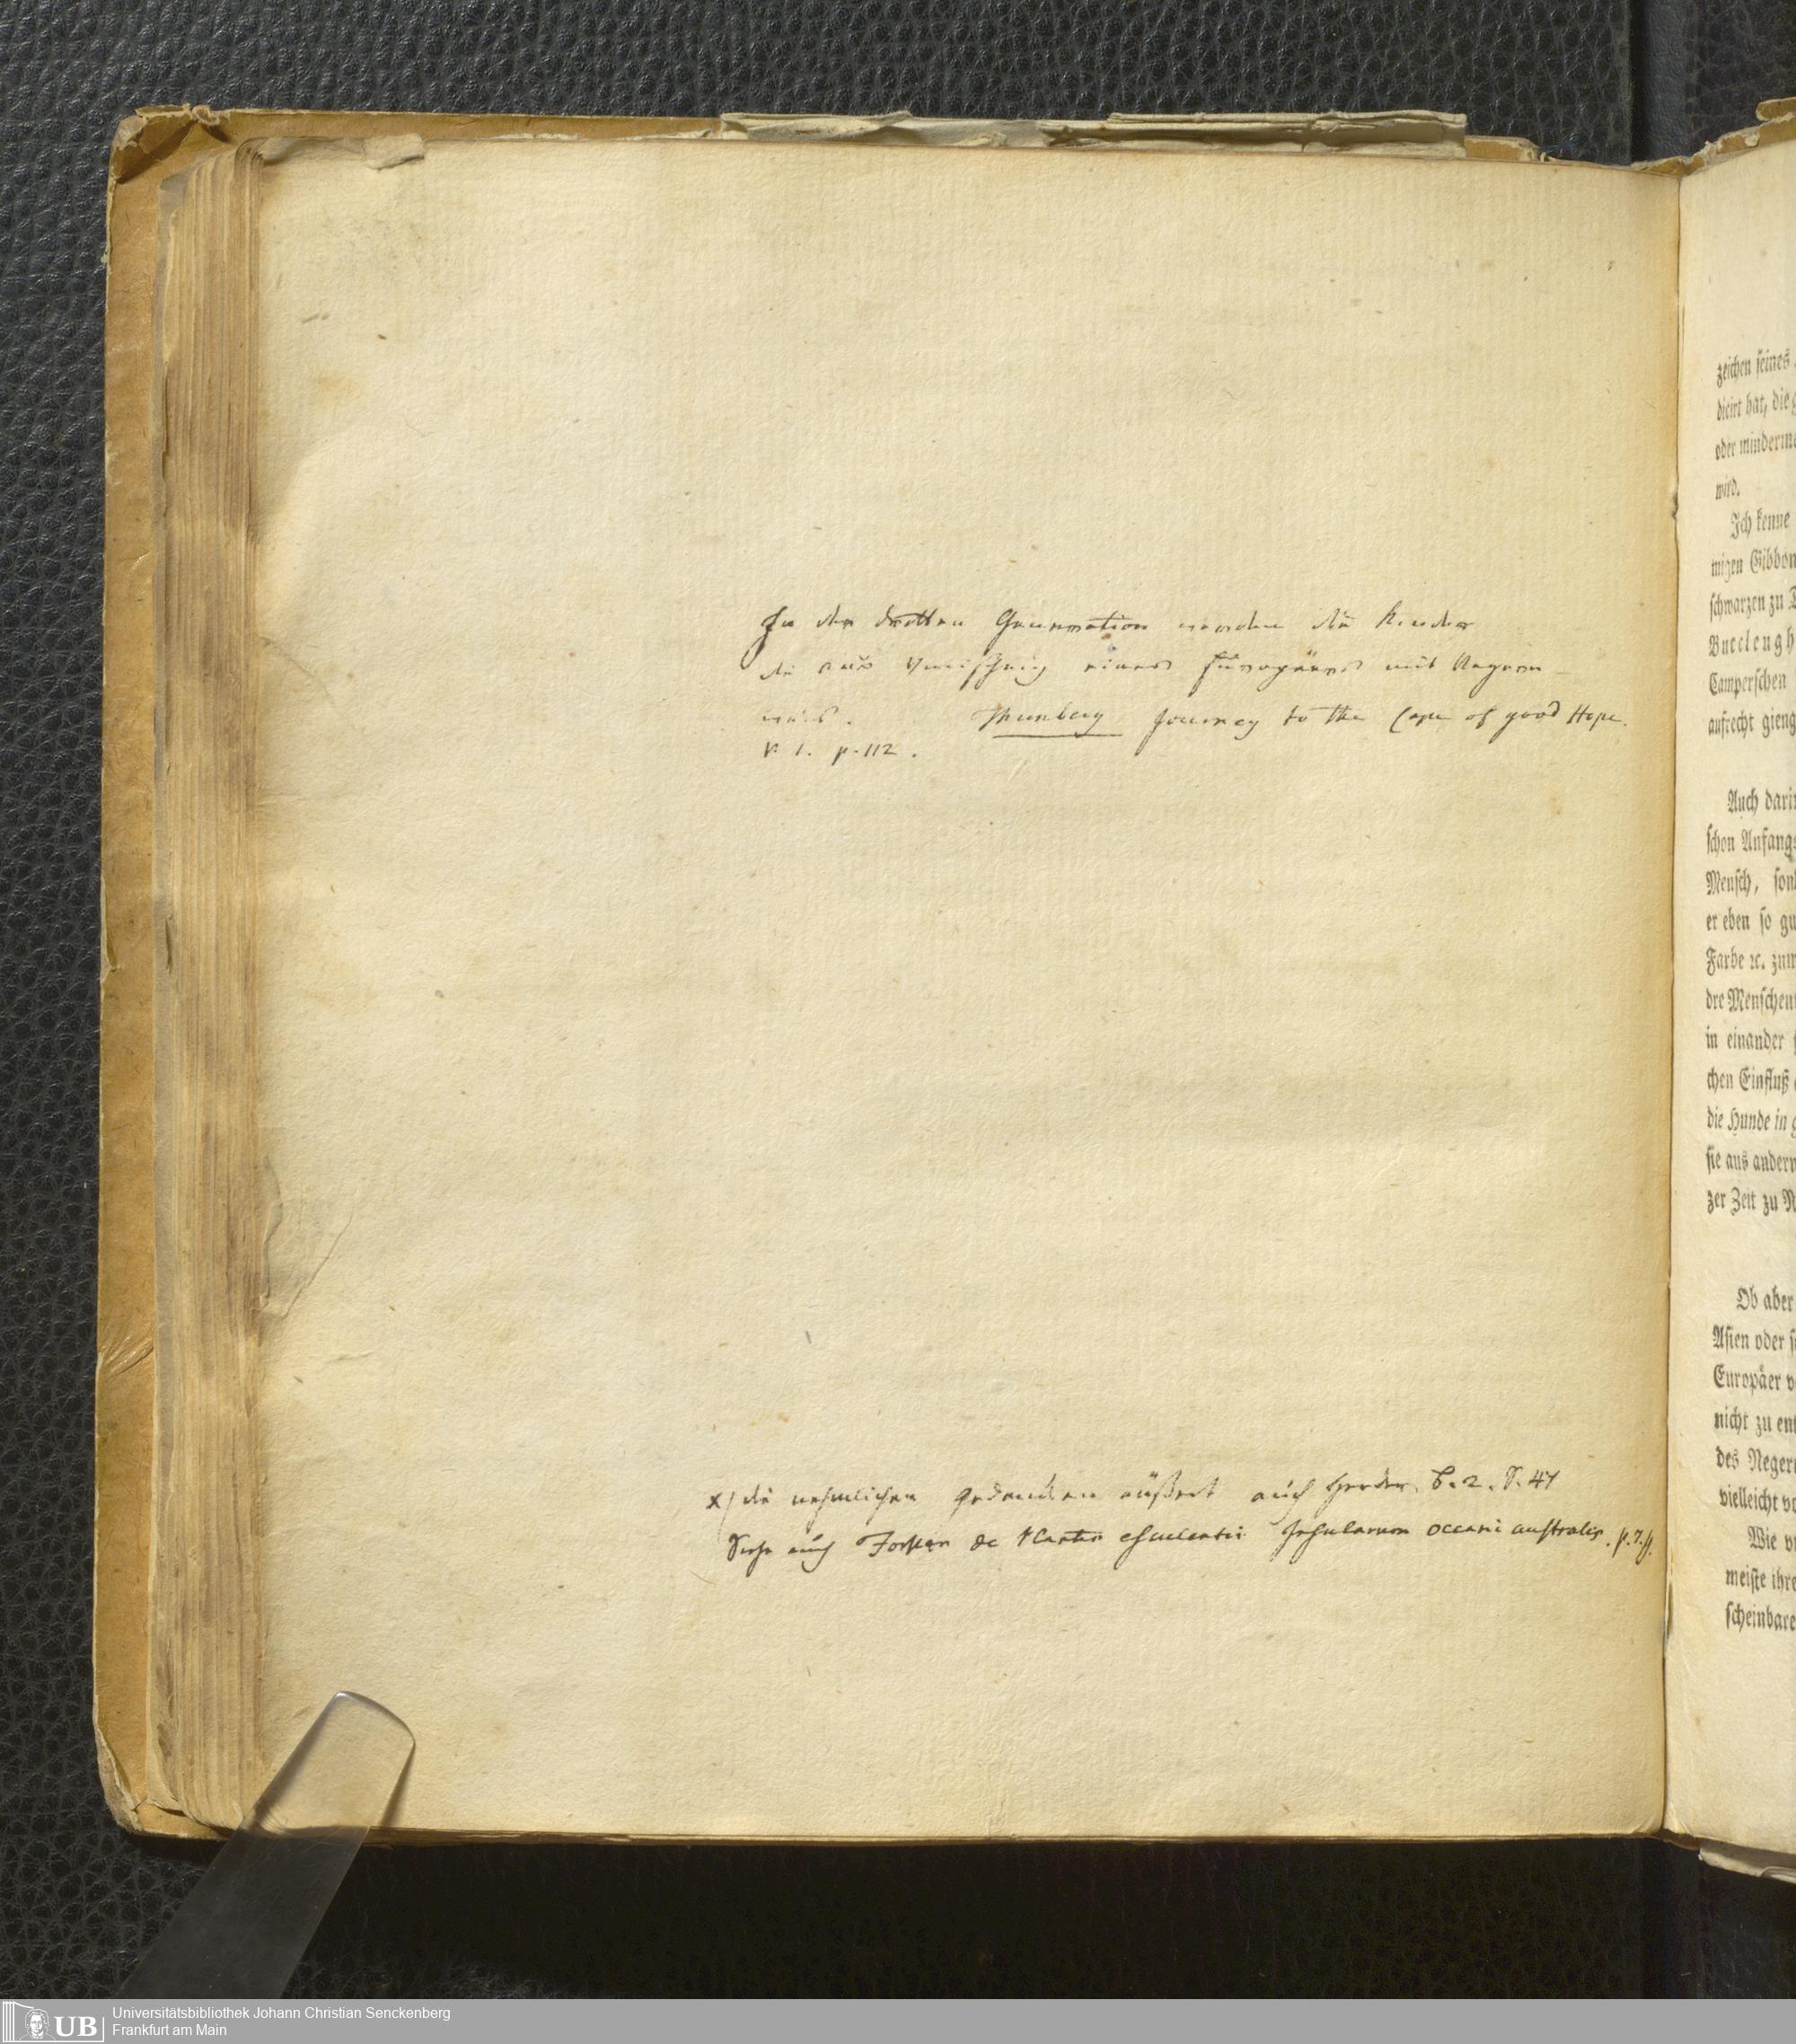 In der dritten Generation werden die Kinder
die aus Vermischung eines Europäers mit Negern
weis. Thunberg Journey to the Cape of good Hope.
V. 1. p. 112.
x) die nehmlichen Gedancken äußert auch Herder. B. 2. S. 47
Siehe auch Forster de Plantis esculentis Insularum oceani australis. p. 7. ff.
zeichen seines
dicirt hat, die
oder minderm
wird.
Ich kenne
migen Gibbon
schwarzen zu
Buccleugh
Camperschen
aufrecht gieng
Auch dari
schon Anfangs
Mensch, son
er eben so gu
Farbe ꝛc. zum
dre Menschen
in einander
chen Einfluß
die Hunde in g
sie aus andern
zer Zeit zu N
Ob aber
Asien oder s
Europäer v
nicht zu ent
des Neger
vielleicht vo
Wie v
meiste ihre
scheinbare
UB Universitätsbibliothek Johann Christian Senckenberg
Frankfurt am Main